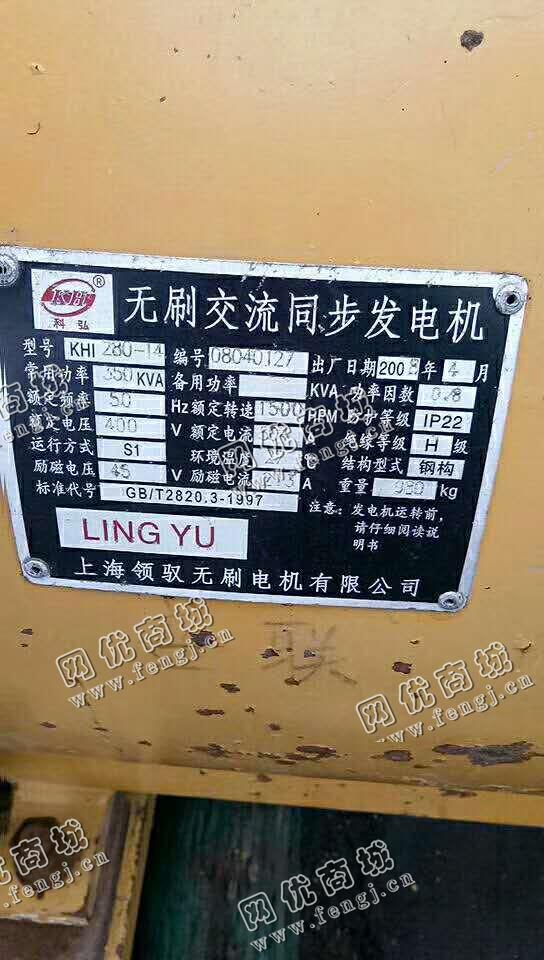 KHC ®
科弘
无刷交流同步发电机
型号 KHI 280-14 编号 08040127 出厂日期 2008 年 4 月
常用功率 350 KVA 备用功率 KVA 功率因数 0.8
额定频率 50 Hz 额定转速 1500 RPM 等级 IP22
额定电压 400 V 额定电流 绝缘等级 H 级
运行方式 S1 环境温 结构型式 钢构
励磁电压 45 V 励磁电流 A 重量 980 kg
标准代号 GB/T2820.3-1997 注意：发电机运转前，
请仔细阅读说
明书
LING YU
上海领驭无刷电机有限公司
联
网优商城
www.fengj.cn
网优商城
www.fengj.cn
网优商城
www.fengj.cn
网优商城
www.fengj.cn
网优商城
www.fengj.cn
网优商城
www.fengj.cn